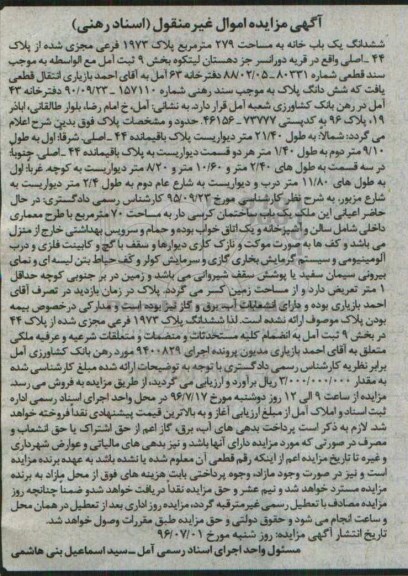 آگهی مزایده اموال غیر منقول (اسناد رهنی)
ششدانگ یک باب خانه به مساحت ۲۷۹ مترمربع پلاک ۱۹۷۳ فرعی مجزی شده از پلاک
۴۴ -اصلی واقع در قریه دورانسر جز دهستان لیتکوه بخش ۹ ثبت آمل مع الواسطه به موجب
سند قطعی شماره ۸۰۳۳۱-۸۸/۰۲/۰۵ دفترخانه ۶۳ آمل به آقای احمد بازیاری انتقال قطعی
یافت که شش دانگ پلاک به موجب سند رهنی شماره ۱۵۷۱۱۰-۹۰/۰۹/۲۳ دفترخانه ۴۳
آمل در رهن بانک کشاورزی شعبه آمل قرار دارد. به نشانی: آمل، خ امام رضا، بلوار طالقانی، اباذر
۱۹، پلاک ۹۶ به کدپستی ۷۳۷۷۷-۴۶۱۵۶. حدود و مشخصات پلاک فوق بدین شرح اعلام
می گردد: شمالا: به طول ۲۱/۴۰ متر دیواریست پلاک باقیمانده ۴۴ -اصلی. شرقا: اول به طول
۹/۱۰ متر دوم به طول ۱/۴۰ متر هر دو قسمت دیواریست به پلاک باقیمانده ۴۴ -اصلی. جنوبا:
در سه قسمت به طول های ۲/۴۰ متر و ۱۰/۶۰ متر و ۸/۲۰ متر دیواریست به کوچه. غربا: اول
به طول های ۱۱/۸۰ متر درب و دیواریست به شارع عام دوم به طول ۲/۴ متر دیواریست به
شارع مزبور. به شرح نظر کارشناسی مورخ ۹۵/۰۹/۲۳ کارشناس رسمی دادگستری: در حال
حاضر اعیانی این ملک یک باب ساختمان کرسی دار به مساحت ۷۰ مترمربع با طرح معماری
داخلی شامل سالن و آشپزخانه و یک اتاق خواب بوده و حمام و سرویس بهداشتی خارج از منزل
می باشد و کف ها به صورت موکت و نازک کاری دیوارها و سقف با گچ و کابینت فلزی و درب
آلومینیومی و سیستم گرمایش بخاری گازی و سرمایش کولر و کف حیاط بتن لیسه ای و نمای
بیرونی سیمان سفید با پوشش سقف شیروانی می باشد و زمین در بر جنوبی کوچه حداقل
۱ متر تعریض دارد و از مساحت زمین کسر می گردد. پلاک در زمان بازدید در تصرف آقای
احمد بازیاری بوده و دارای انشعابات آب، برق و گاز نیز بوده است و مدارکی در خصوص بیمه
بودن پلاک موصوف ارائه نشده است. لذا ششدانگ پلاک ۱۹۷۳ فرعی مجزی شده از پلاک ۴۴
در بخش ۹ ثبت آمل به انضمام کلیه مستحدثات و منضمات و متعلقات شرعیه و عرفیه ملکی
متعلق به آقای احمد بازیاری مدیون پرونده اجرای ۹۴۰۰۸۲۹ مورد رهن بانک کشاورزی آمل
برابر نظریه کارشناس رسمی دادگستری با توجه به توضیحات ارائه شده مبلغ کارشناسی شده
به مقدار ۲/۰۰۰/۰۰۰/۰۰۰ ریال برآورد و ارزیابی می گردید، از طریق مزایده به فروش می رسد.
مزایده از ساعت ۹ الی ۱۲ روز دوشنبه مورخ ۹۶/۷/۱۷ در محل واحد اجرای اسناد رسمی اداره
ثبت اسناد و املاک آمل از مبلغ ارزیابی آغاز و به بالاترین قیمت پیشنهادی نقداً فروخته خواهد
شد. لازم به ذکر است پرداخت بدهی های آب، برق، گاز اعم از حق اشتراک یا حق انشعاب و
مصرف در صورتی که مورد مزایده دارای آنها باشد و نیز بدهی های مالیاتی و عوارض شهرداری
و غیره تا تاریخ مزایده اعم از اینکه رقم قطعی آن معلوم شده یا نشده باشد به عهده برنده مزایده
است و نیز در صورت وجود مازاد، وجوه پرداختی بابت هزینه های فوق از محل مازاد به برنده
مزایده مسترد خواهد شد و نیم عشر و حق مزایده نقداً دریافت خواهد شدو ضمناً چنانچه روز
مزایده مصادف با تعطیل رسمی غیرمترقبه گردد، مزایده روز اداری بعد از تعطیل در همان محل
و ساعت انجام می شود و حقوق دولتی و حق مزایده طبق مقررات وصول خواهد شد.
تاریخ انتشار آگهی مزایده: روز شنبه مورخ ۹۶/۰۷/۰۱
مسئول واحد اجرای اسناد رسمی آمل -سید اسماعیل بنی هاشمی